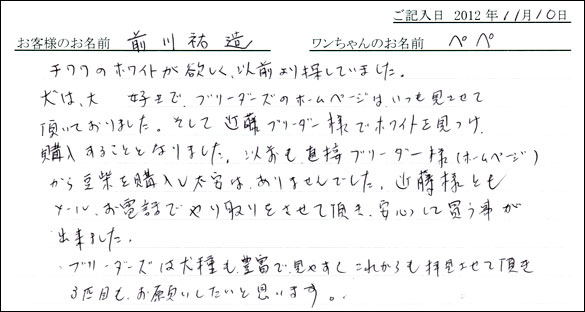 ご記入日 2012年11月10日
お客様のお名前 前川祐造 ワンちゃんのお名前 ペペ
チワワのホワイトが欲しく、以前より探していました。
犬は、大 好きで、ブリーダーズのホームページは、いつも見させて
頂いておりました。そして近藤ブリーダー様でホワイトを見つけ、
購入することとなりました。以前も、直接ブリーダー様(ホームページ)
から豆柴を購入し大変は、ありませんでした。近藤様とも
メール、お電話でやり取りをさせて頂き、安心して買う事が
出来ました。
ブリーダーズは犬種も、豊富で、見やすく これからも拝見させて頂き
3匹目も、お願いしたいと思います。